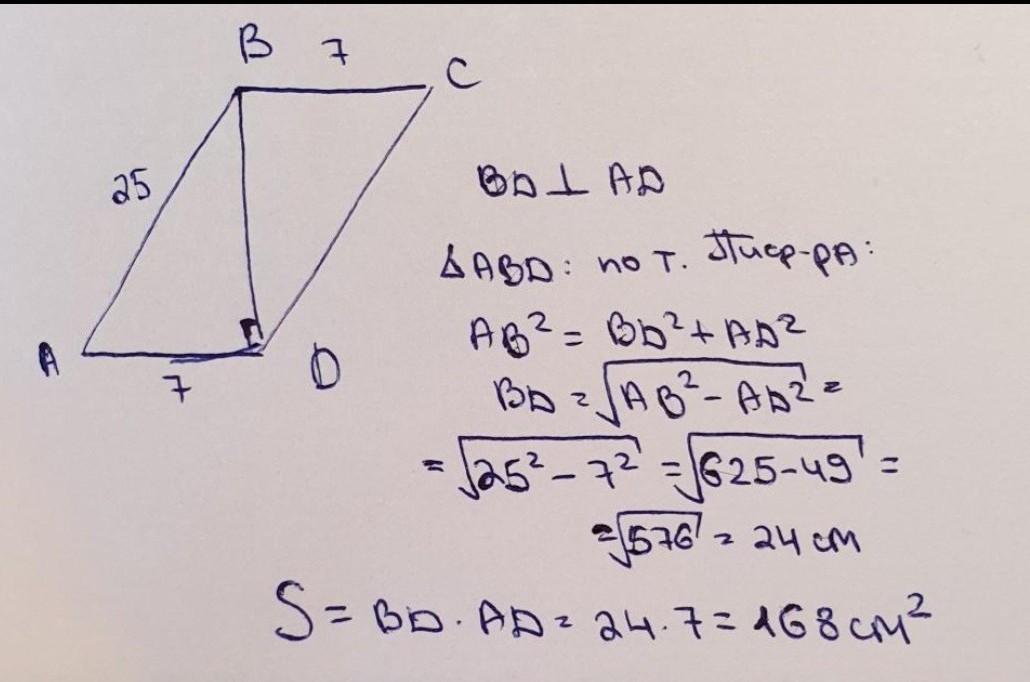 B 7 C
25
A 7 D
BD ⊥ AD
△ABD: по т. Пиф-ра:
AB² = BD² + AD²
BD = √AB² - AD² =
= √25² - 7² = √625-49 =
= √576 = 24 см
S = BD · AD = 24 · 7 = 168 см²